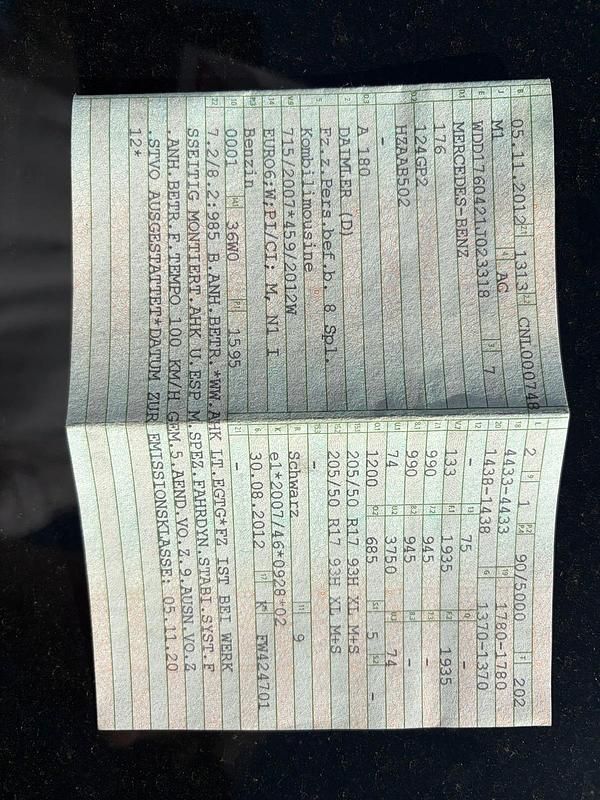 05.11.2012 1313 CNL000748
M1 AG
WDD1760421J023318 7
MERCEDES-BENZ
176
124GP2
HZAAB502
-
A 180
DAIMLER (D)
Fz.z.Pers.bef.b. 8 Spl.
Kombilimousine
715/2007*459/2012W
EURO6;W;PI/CI; M, N1 I
Benzin
0001 36W0 1595
2 1 90/5000 202
4433-4433 1780-1780
1438-1438 1370-1370
- 75 -
133 1935 1935
990 945 -
990 945 -
74 3750 74
1200 685 5 -
205/50 R17 93H XL M+S
205/50 R17 93H XL M+S
-
Schwarz 9
e1*2007/46*0928*02
30.08.2012 K FW424701
-
7.2/8.2:985 B.ANH.BETR.*WW.AHK LT.EGTG*FZ IST BEI WERK
SSEITIG MONTIERT.AHK U.ESP M.SPEZ.FAHRDYN.STABI.SYST.F
.ANH.BETR.F.TEMPO 100 KM/H GEM.5.AEND.VO.Z.9.AUSN.VO.Z
.STVO AUSGESTATTET*DATUM ZUR EMISSIONSKLASSE: 05.11.20
12*